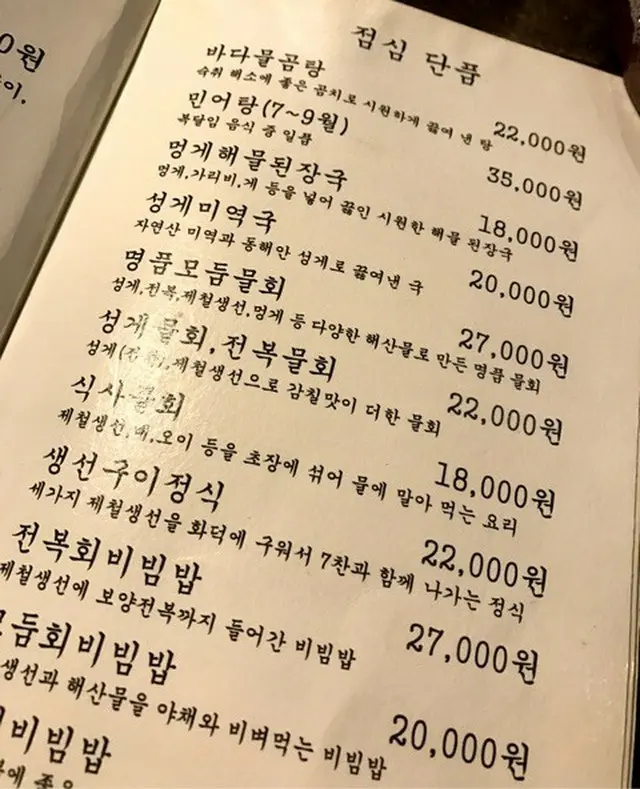 0원
이.
점심 단품
바다물곰탕
숙취 해소에 좋은 곰치로 시원하게 끓여 낸 탕
22,000원
민어탕(7~9월)
복달임 음식 중 일품
35,000원
멍게해물된장국
멍게,가리비,게 등을 넣어 끓인 시원한 해물 된장국
18,000원
성게미역국
자연산 미역과 동해안 성게로 끓여낸 국
20,000원
명품모듬물회
성게,전복,제철생선,멍게 등 다양한 해산물로 만든 명품 물회
27,000원
성게물회,전복물회
성게(전복),제철생선으로 감칠맛이 더한 물회
22,000원
식사물회
제철생선,배,오이 등을 초장에 섞어 물에 말아 먹는 요리
18,000원
생선구이정식
세가지 제철생선을 화덕에 구워서 7찬과 함께 나가는 정식
22,000원
전복회비빔밥
제철생선에 보양전복까지 들어간 비빔밥
27,000원
모듬회비빔밥
생선과 해산물을 야채와 비벼먹는 비빔밥
20,000원
비빔밥